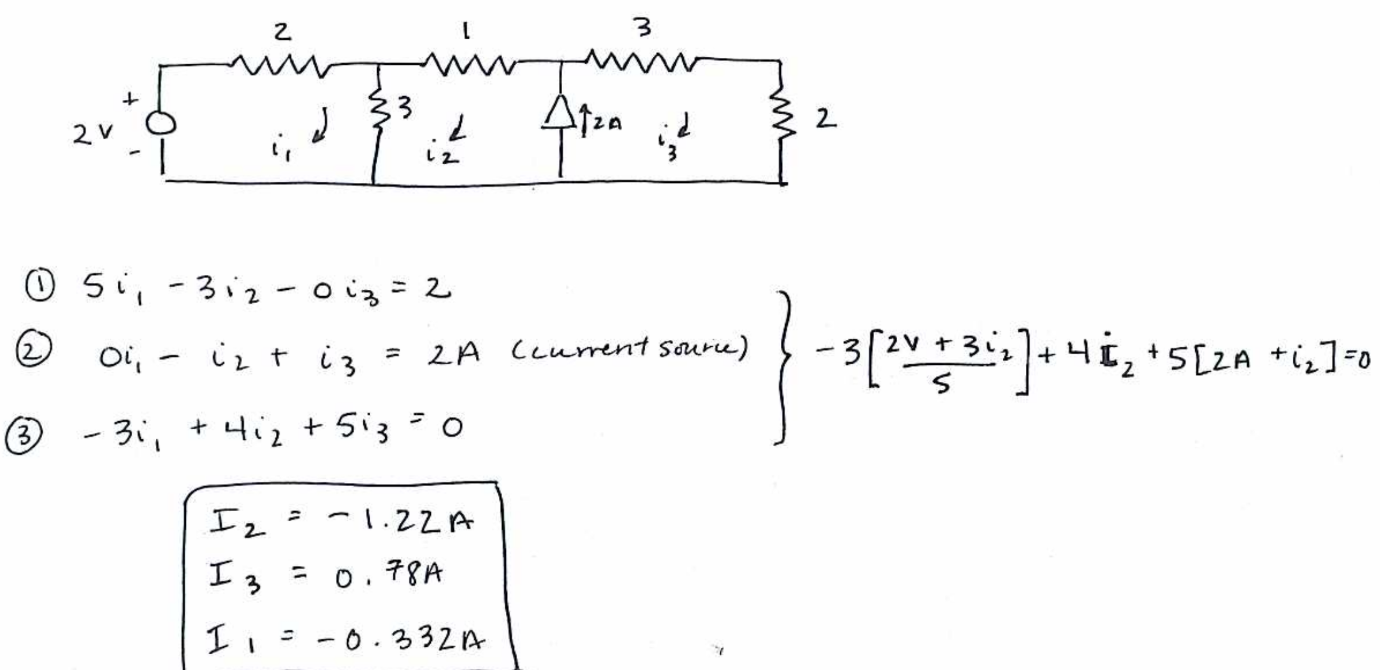 2 1 3
+ 2v - i₁ 3 i₂ ↑2A i₃ 2
① 5i₁ - 3i₂ - 0i₃ = 2
② 0i₁ - i₂ + i₃ = 2A (current source)
③ -3i₁ + 4i₂ + 5i₃ = 0
-3[(2V + 3i₂)/5] + 4I₂ + 5[2A + i₂] = 0
I₂ = -1.22A
I₃ = 0.78A
I₁ = -0.332A